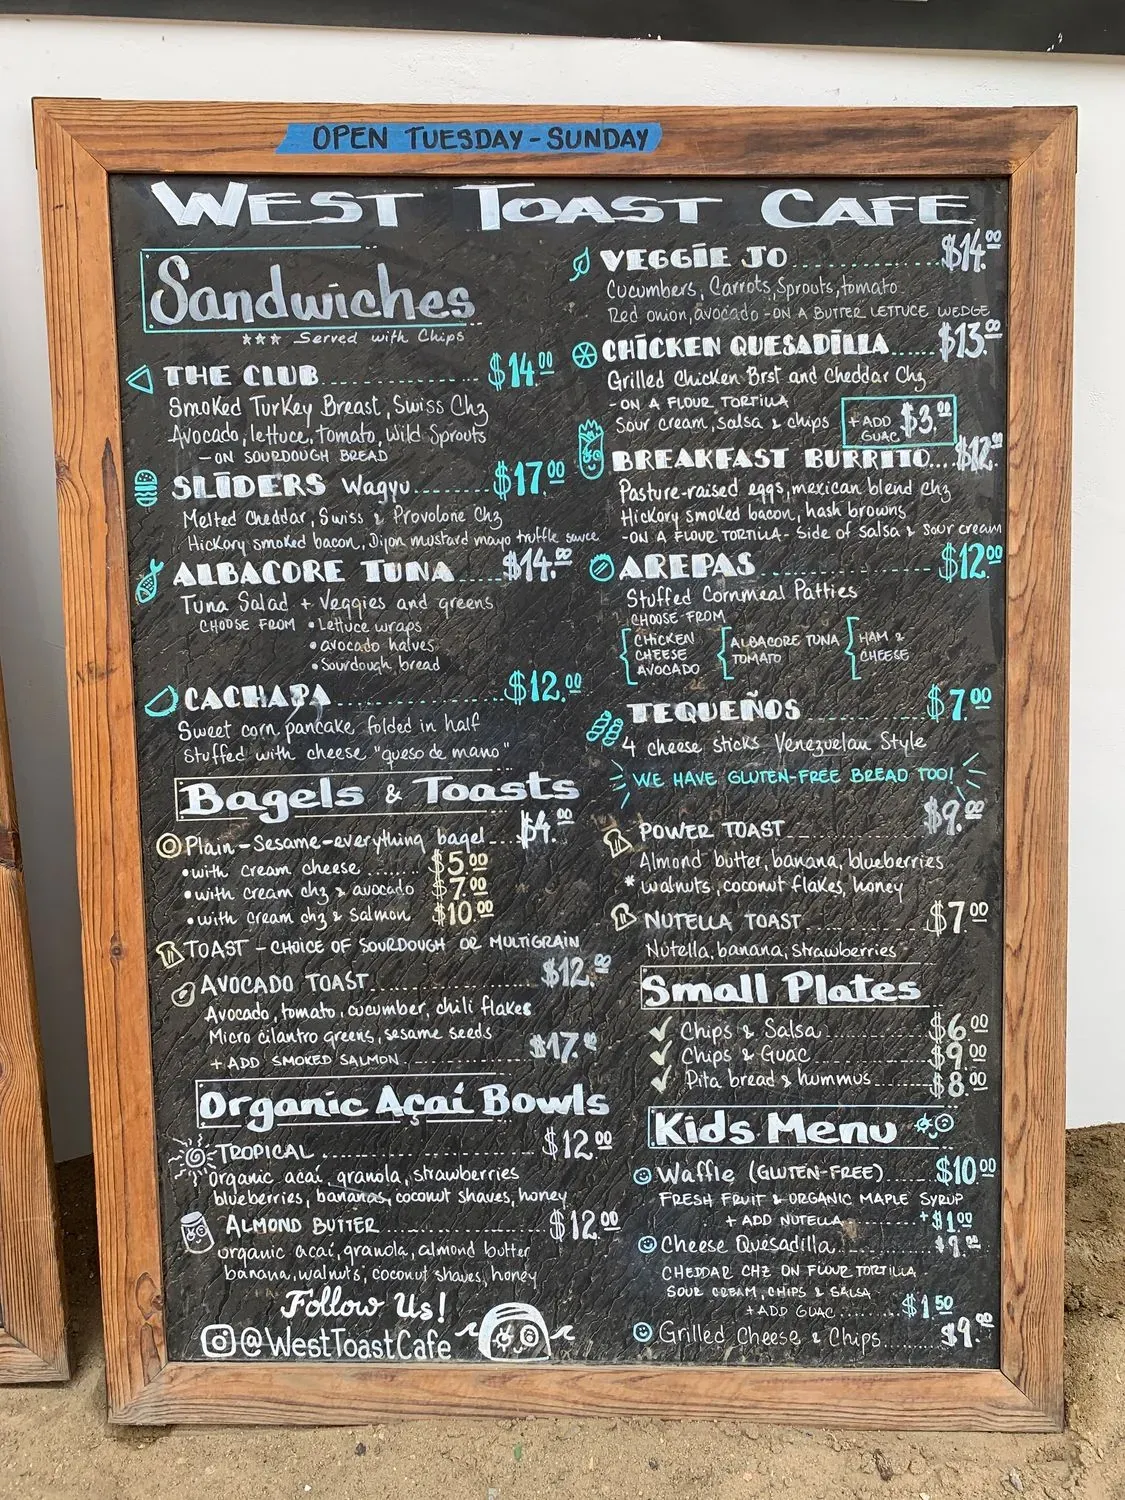 OPEN TUESDAY-SUNDAY
WEST TOAST CAFE
Sandwiches
*** Served with Chips
THE CLUB $14.00
Smoked Turkey Breast, Swiss Chz
Avocado, lettuce, tomato, Wild Sprouts
- ON SOURDOUGH BREAD
SLIDERS Wagyu $17.00
Melted Cheddar, Swiss & Provolone Chz
Hickory smoked bacon, Dijon mustard mayo truffle sauce
ALBACORE TUNA $14.00
Tuna Salad + Veggies and greens
CHOOSE FROM • Lettuce wraps
• avocado halves
• Sourdough bread
CACHAPA $12.00
Sweet corn pancake folded in half
Stuffed with cheese "queso de mano"
Bagels & Toasts
Plain-Sesame-everything bagel $4.00
• with cream cheese $5.00
• with cream chz & avocado $7.00
• with cream chz & salmon $10.00
TOAST - CHOICE OF SOURDOUGH OR MULTIGRAIN
AVOCADO TOAST $12.00
Avocado, tomato, cucumber, chili flakes
Micro cilantro greens, sesame seeds
+ ADD SMOKED SALMON $17.00
Organic Açaí Bowls
TROPICAL $12.00
Organic acaí, granola, strawberries
blueberries, bananas, coconut shaves, honey
ALMOND BUTTER $12.00
organic acaí, granola, almond butter
banana, walnuts, coconut shaves, honey
Follow Us!
@WestToastCafe
VEGGIE JO $14.00
Cucumbers, Carrots, Sprouts, tomato
Red onion, avocado - ON A BUTTER LETTUCE WEDGE
CHICKEN QUESADILLA $13.00
Grilled Chicken Brst and Cheddar Chz
- ON A FLOUR TORTILLA
Sour cream, salsa & chips
+ ADD GUAC $3.00
BREAKFAST BURRITO $12.
Pasture-raised eggs, mexican blend chz
Hickory smoked bacon, hash browns
- ON A FLOUR TORTILLA - Side of salsa & sour cream
AREPAS $12.00
Stuffed Cornmeal Patties
CHOOSE FROM
CHICKEN CHEESE AVOCADO
ALBACORE TUNA TOMATO
HAM & CHEESE
TEQUEÑOS $7.00
4 cheese sticks Venezuelan Style
WE HAVE GLUTEN-FREE BREAD TOO!
POWER TOAST $9.00
Almond butter, banana, blueberries
* walnuts, coconut flakes, honey
NUTELLA TOAST $7.00
Nutella, banana, strawberries
Small Plates
Chips & Salsa $6.00
Chips & Guac $9.00
Pita bread & hummus $8.00
Kids Menu
Waffle (GLUTEN-FREE) $10.00
FRESH FRUIT & ORGANIC MAPLE SYRUP
+ ADD NUTELLA +$1.00
Cheese Quesadilla $9.00
CHEDDAR CHZ ON FLOUR TORTILLA
SOUR CREAM, CHIPS & SALSA
+ ADD GUAC $1.50
Grilled Cheese & Chips $9.00